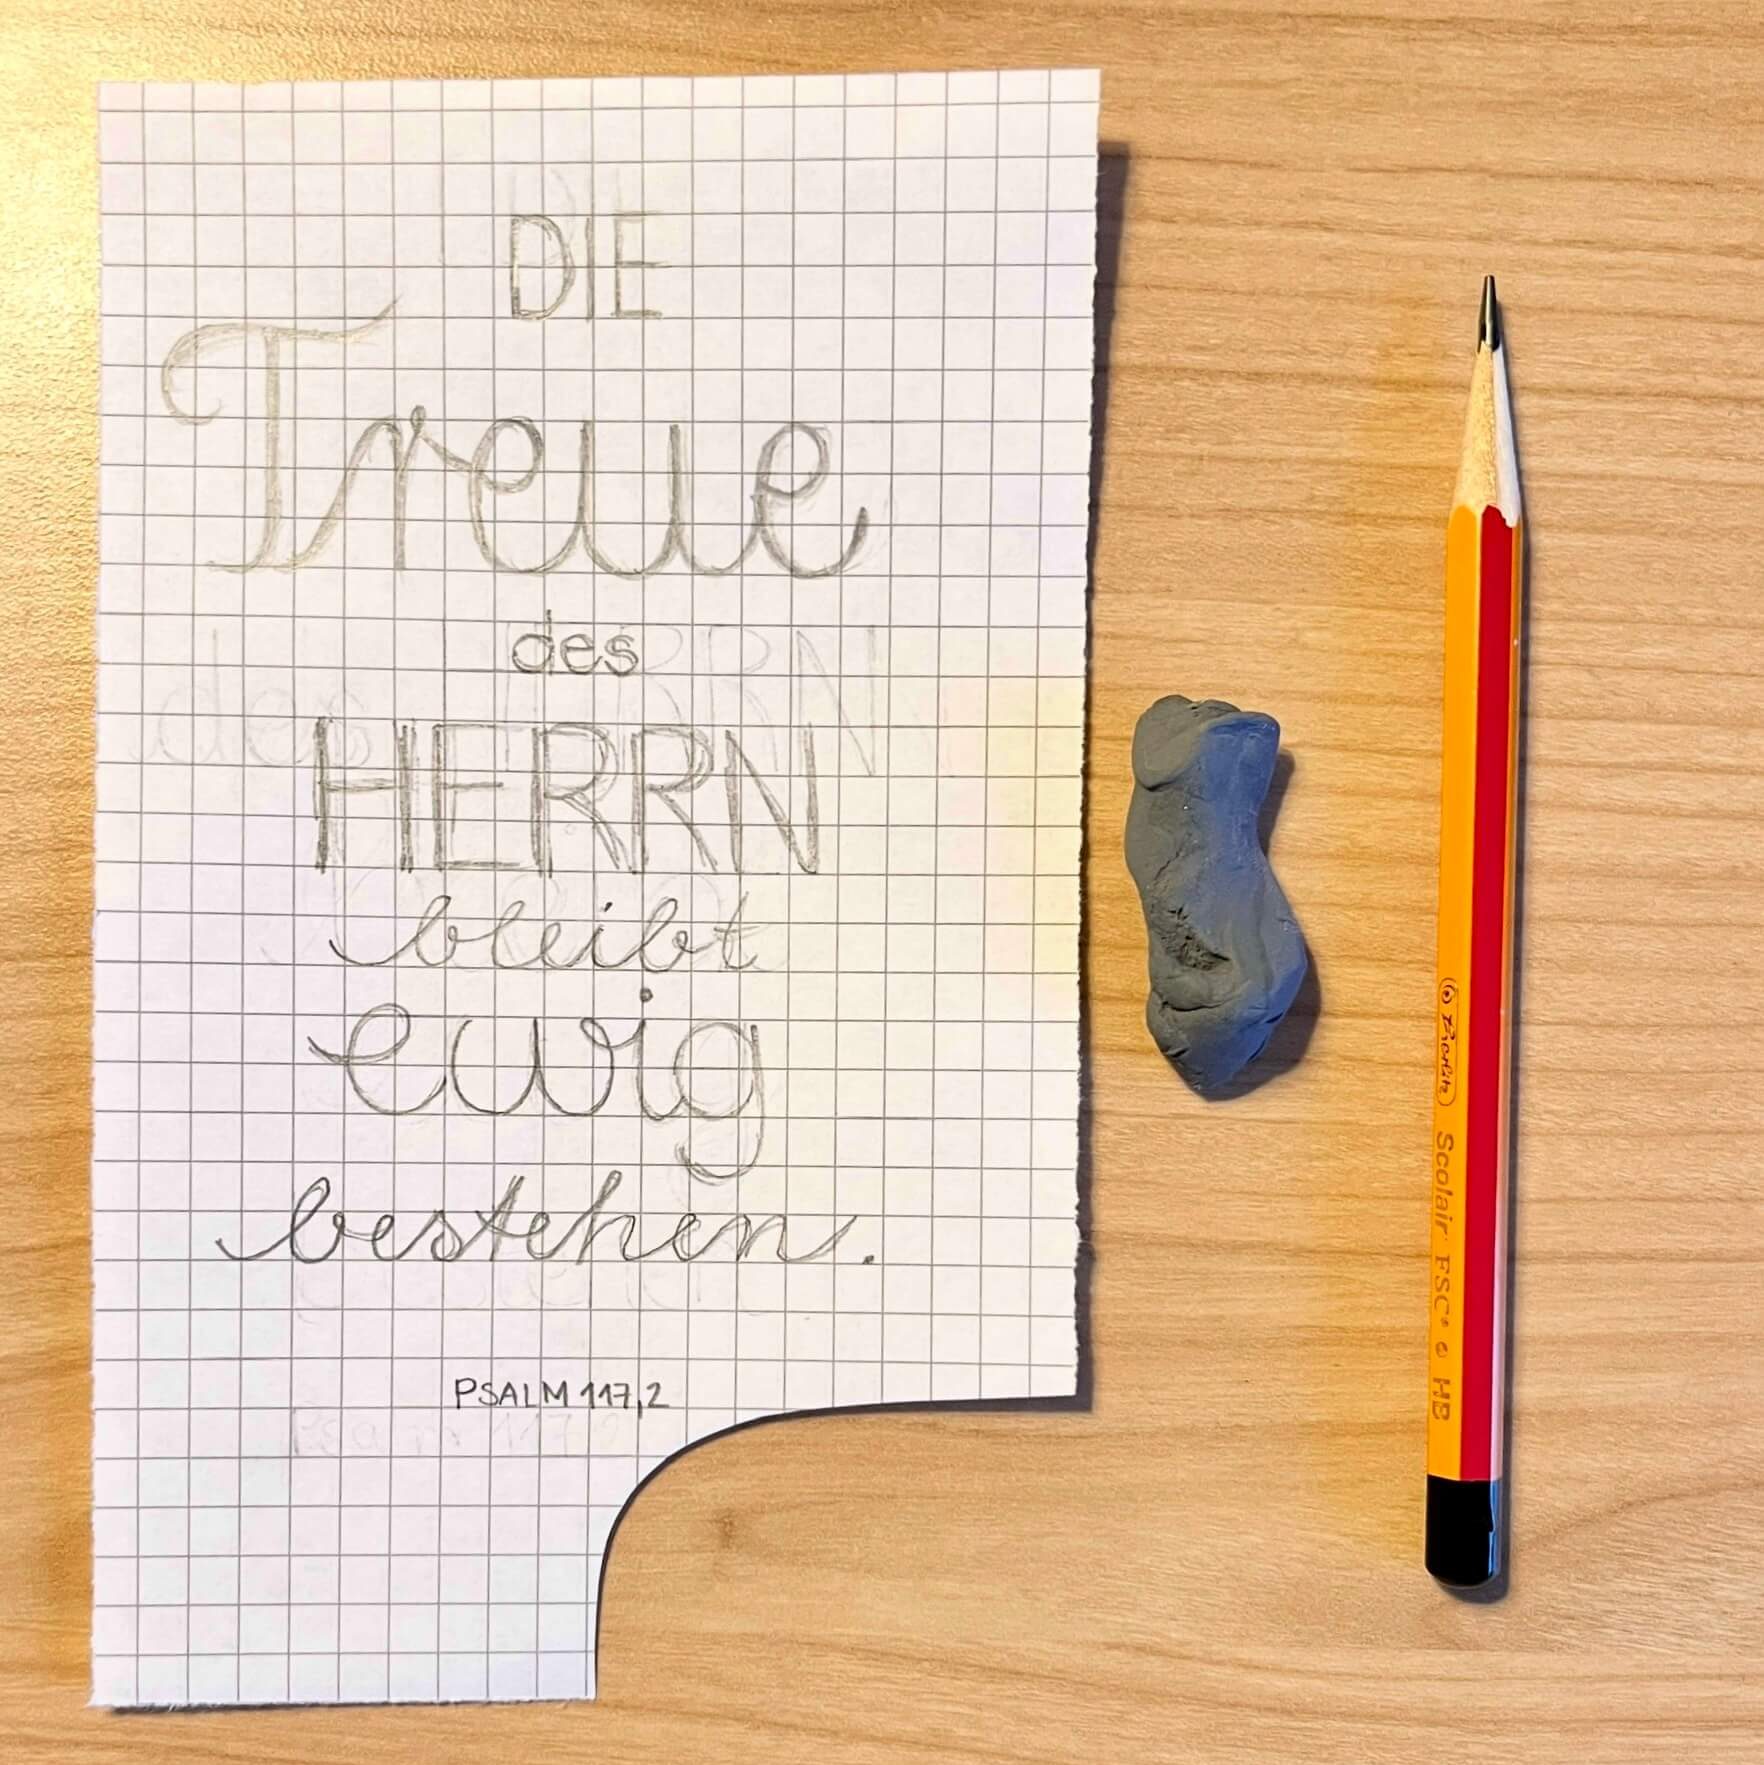 DIE
Treue
des
HERRN
bleibt
ewig
bestehen.
PSALM 117,2
Scolair FSC® HB